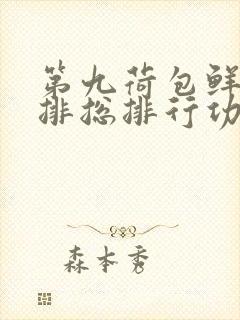 第九荷包鲜
排总排行功
森本秀